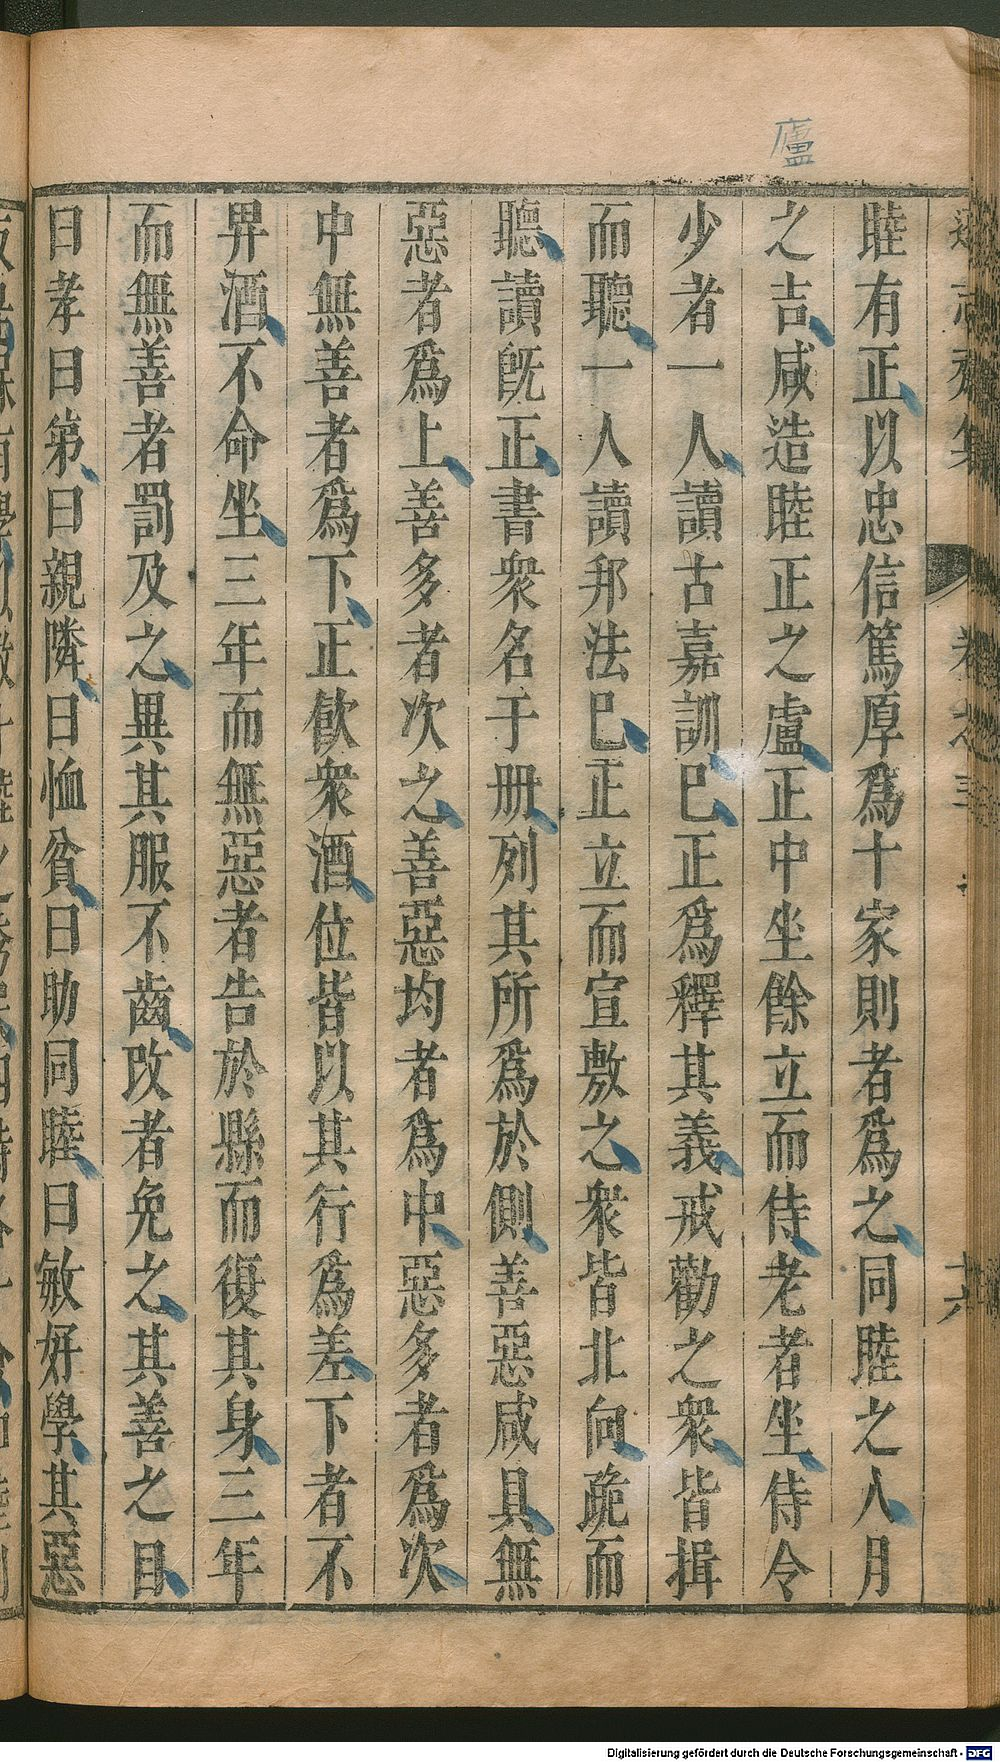 廬
睦有正以忠信篤厚爲十家則者爲之同睦之人月
之吉咸造睦正之廬正中坐餘立而侍老者坐侍令
少者一人讀古嘉訓已正爲釋其義戒勸之衆皆揖
而聽一人讀邦法已正立而宣敷之衆皆北向跪而
聽讀旣正書衆名于册列其所爲於側善惡咸具無
惡者爲上善多者次之善惡均者爲中惡多者爲次
中無善者爲下正飮衆酒位皆以其行爲差下者不
畀酒不命坐三年而無惡者告於縣而復其身三年
而無善者罰及之異其服不齒改者免之其善之目
曰孝曰弟曰親隣曰恤貧曰助同睦曰敏好學其惡
Digitalisierung gefördert durch die Deutsche Forschungsgemeinschaft - DFG